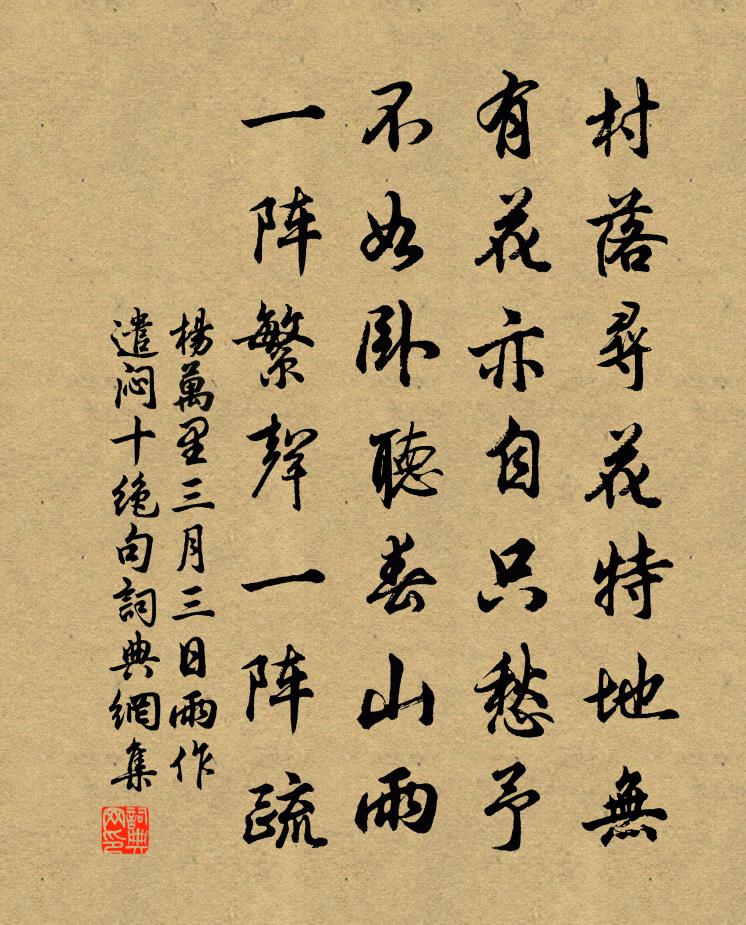 村落尋花特地無
有花亦自只愁予
不如卧聽春山雨
一阵繁聲一阵疏
楊萬里三月三日雨作
遣闷十绝句詞典網集
詞典网印